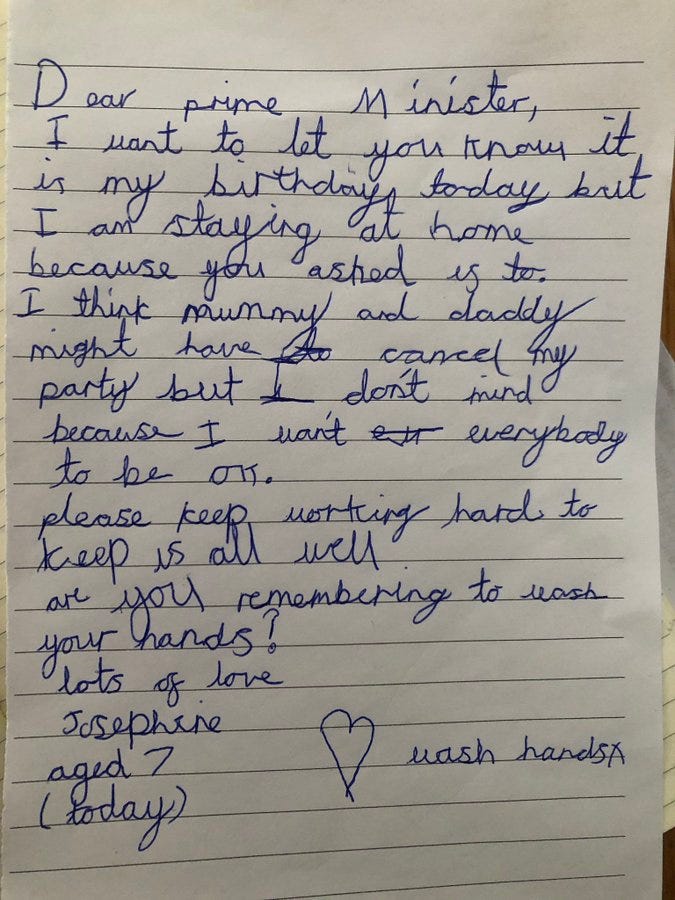 Dear prime Minister,
I want to let you know it
is my birthday, today but
I am staying at home
because you asked us to.
I think mummy and daddy
might have to cancel my
party but I don't mind
because I want everybody
to be ok.
please keep working hard to
keep us all well
are you remembering to wash
your hands?
lots of love
Josephine
aged 7
wash hands x
(today)